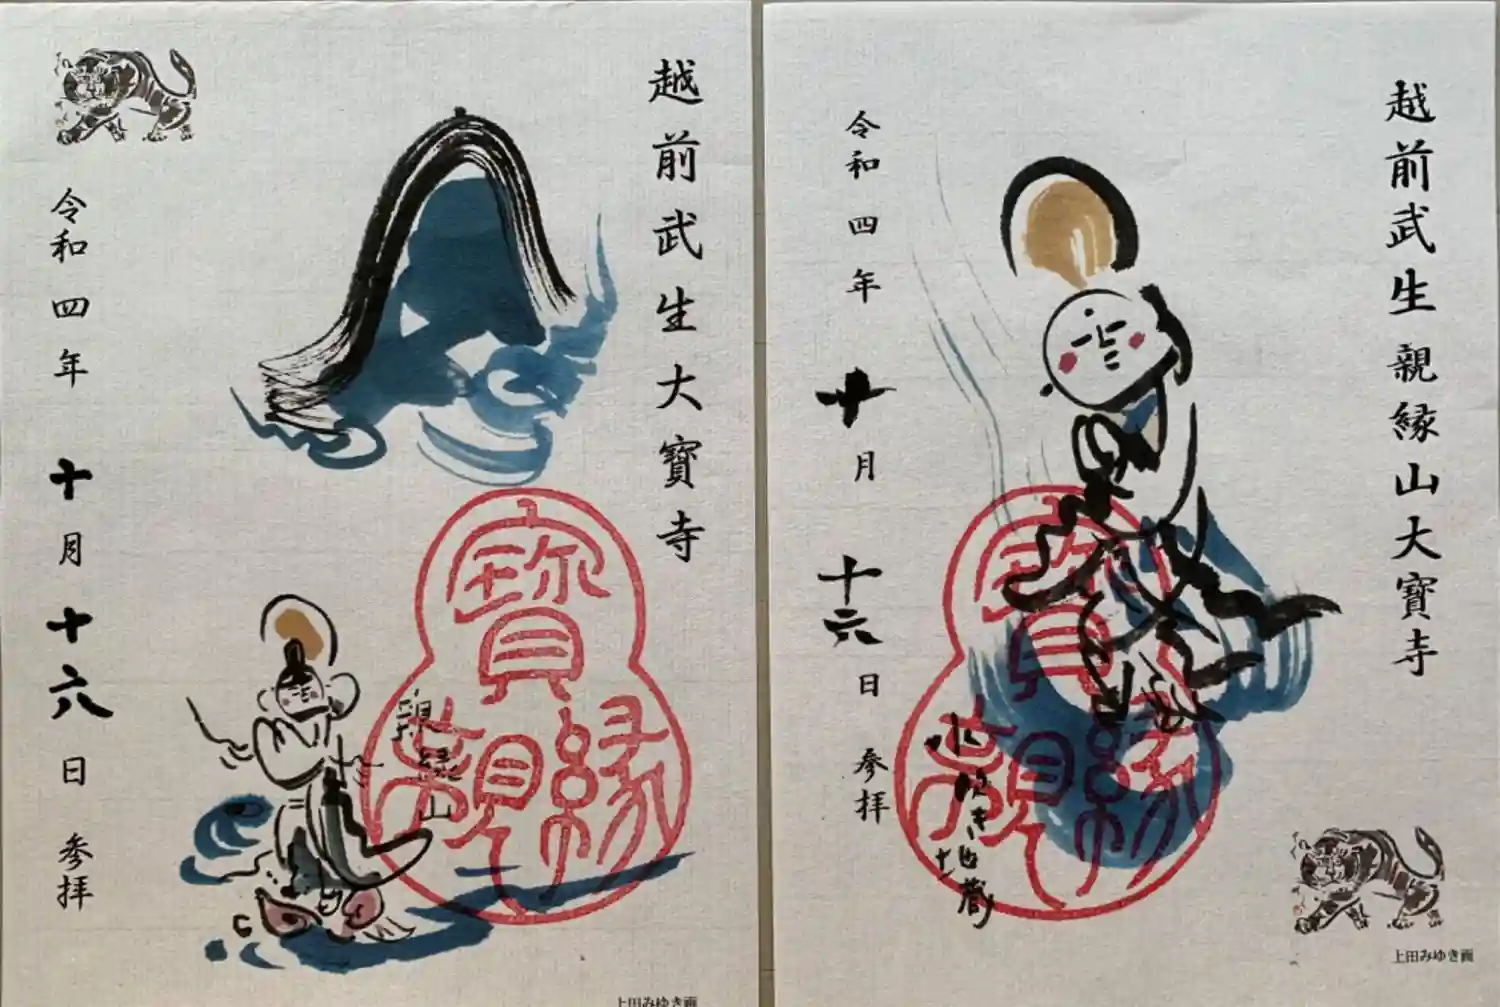 越前武生大寶寺
寶
親縁
親縁山
令和四年十月十六日参拝
上田みゆき画
越前武生親縁山大寶寺
寶
親縁
水吹き地蔵
令和四年十月十六日参拝
上田みゆき画